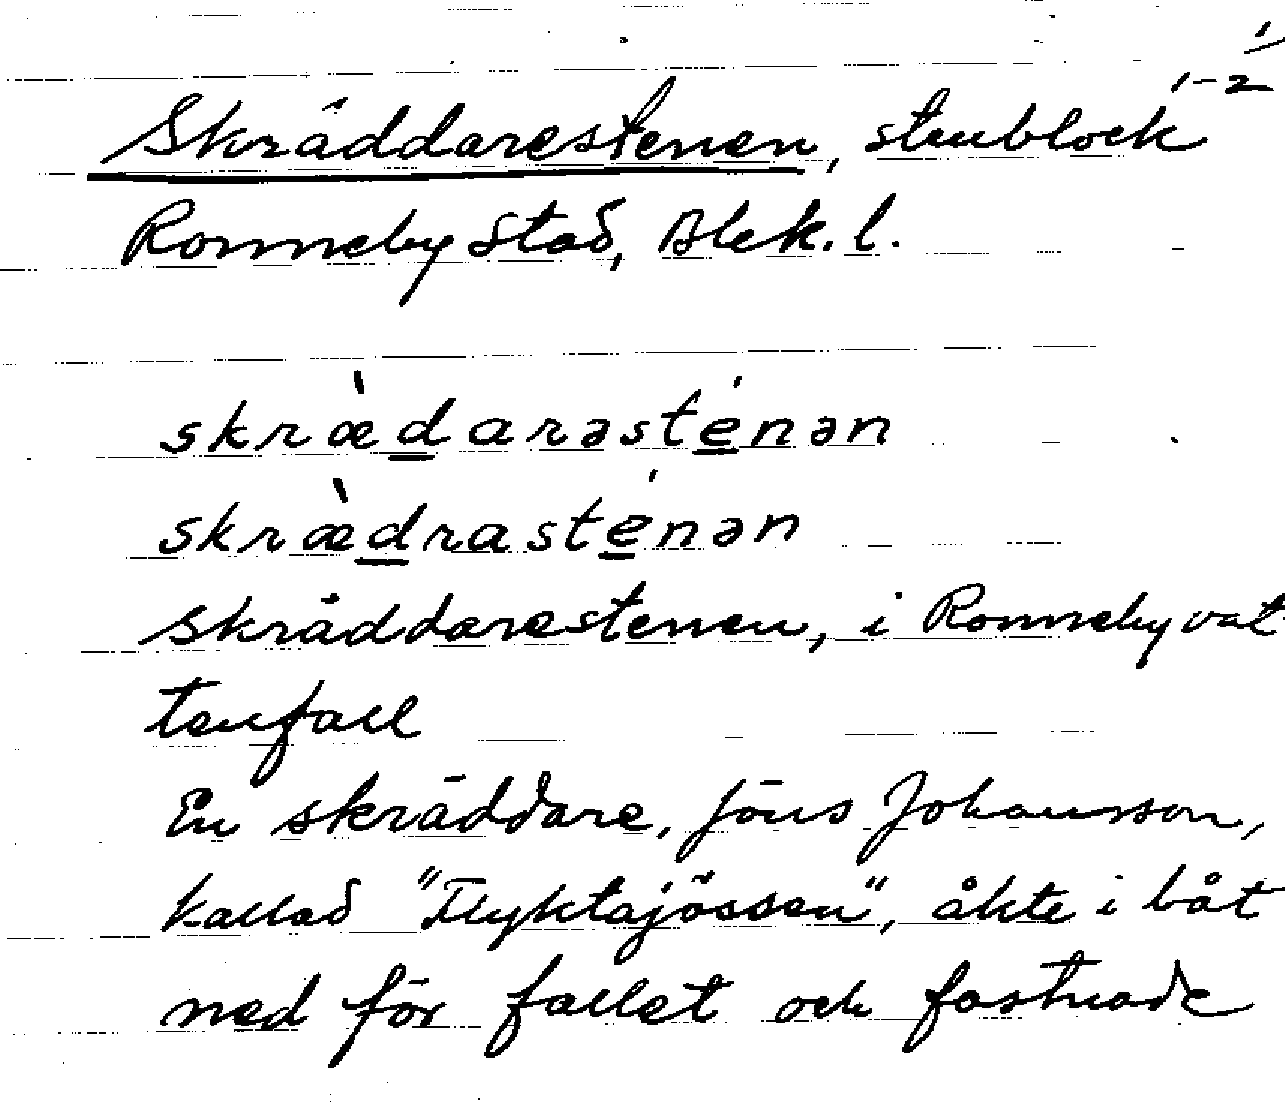 1/1-2
Skräddarestenen, stenblock
Ronneby stad, Blek. l.
skræ̀darəsténən
skræ̀drasténən
Skräddarestenen, i Ronneby vat-
tenfall
En skräddare, Jöns Johansson,
kallad "Flyktajössen", åkte i båt
ned för fallet och fastnade